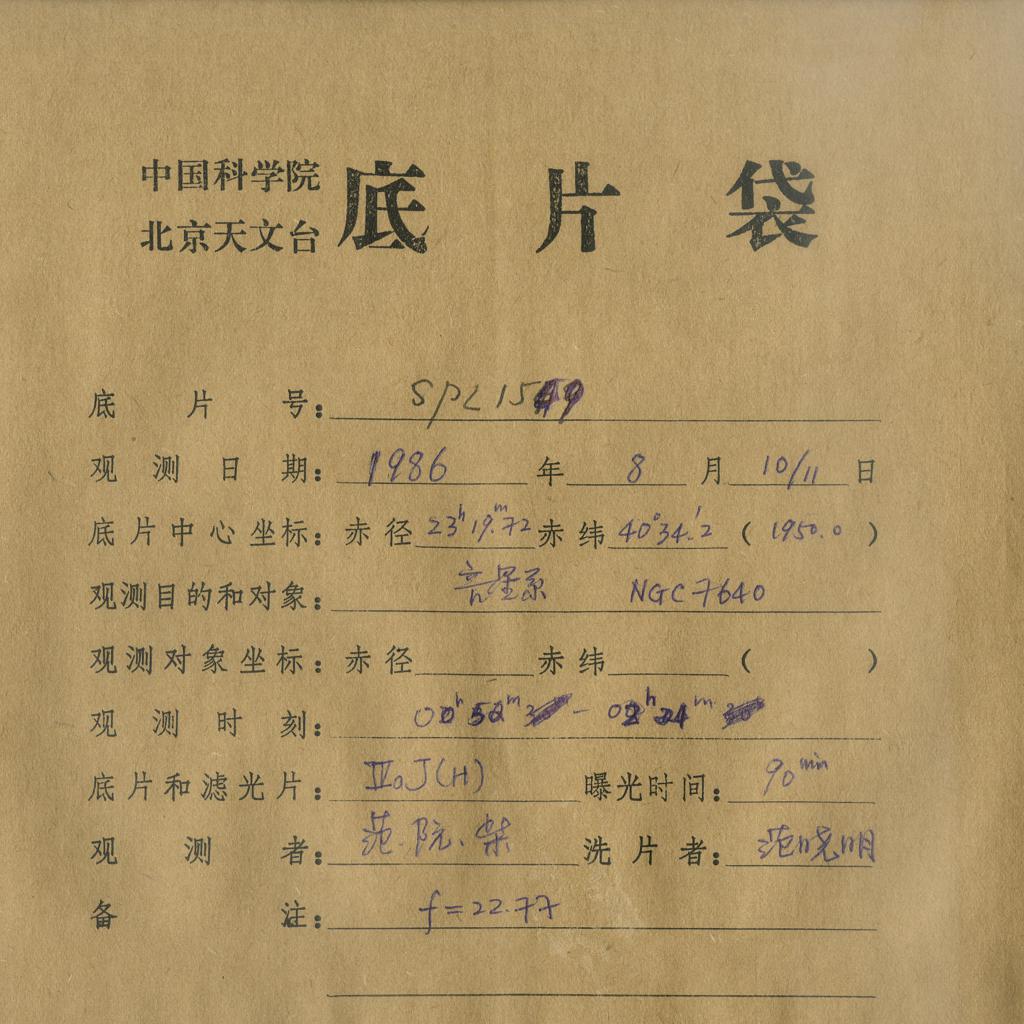 中国科学院
北京天文台
底片袋
底片号：SPL 1549
观测日期：1986年8月10/11日
底片中心坐标：赤径23ʰ19.ᵐ72赤纬40°34.′2（1950.0）
观测目的和对象：星系 NGC 7640
观测对象坐标：赤径 赤纬 （ ）
观测时刻：00ʰ 52ᵐ - 02ʰ 24ᵐ
底片和滤光片：ⅣaJ(H) 曝光时间：90ᵐⁱⁿ
观测者：范.阮.柴 洗片者：范晓明
备注：f=22.77